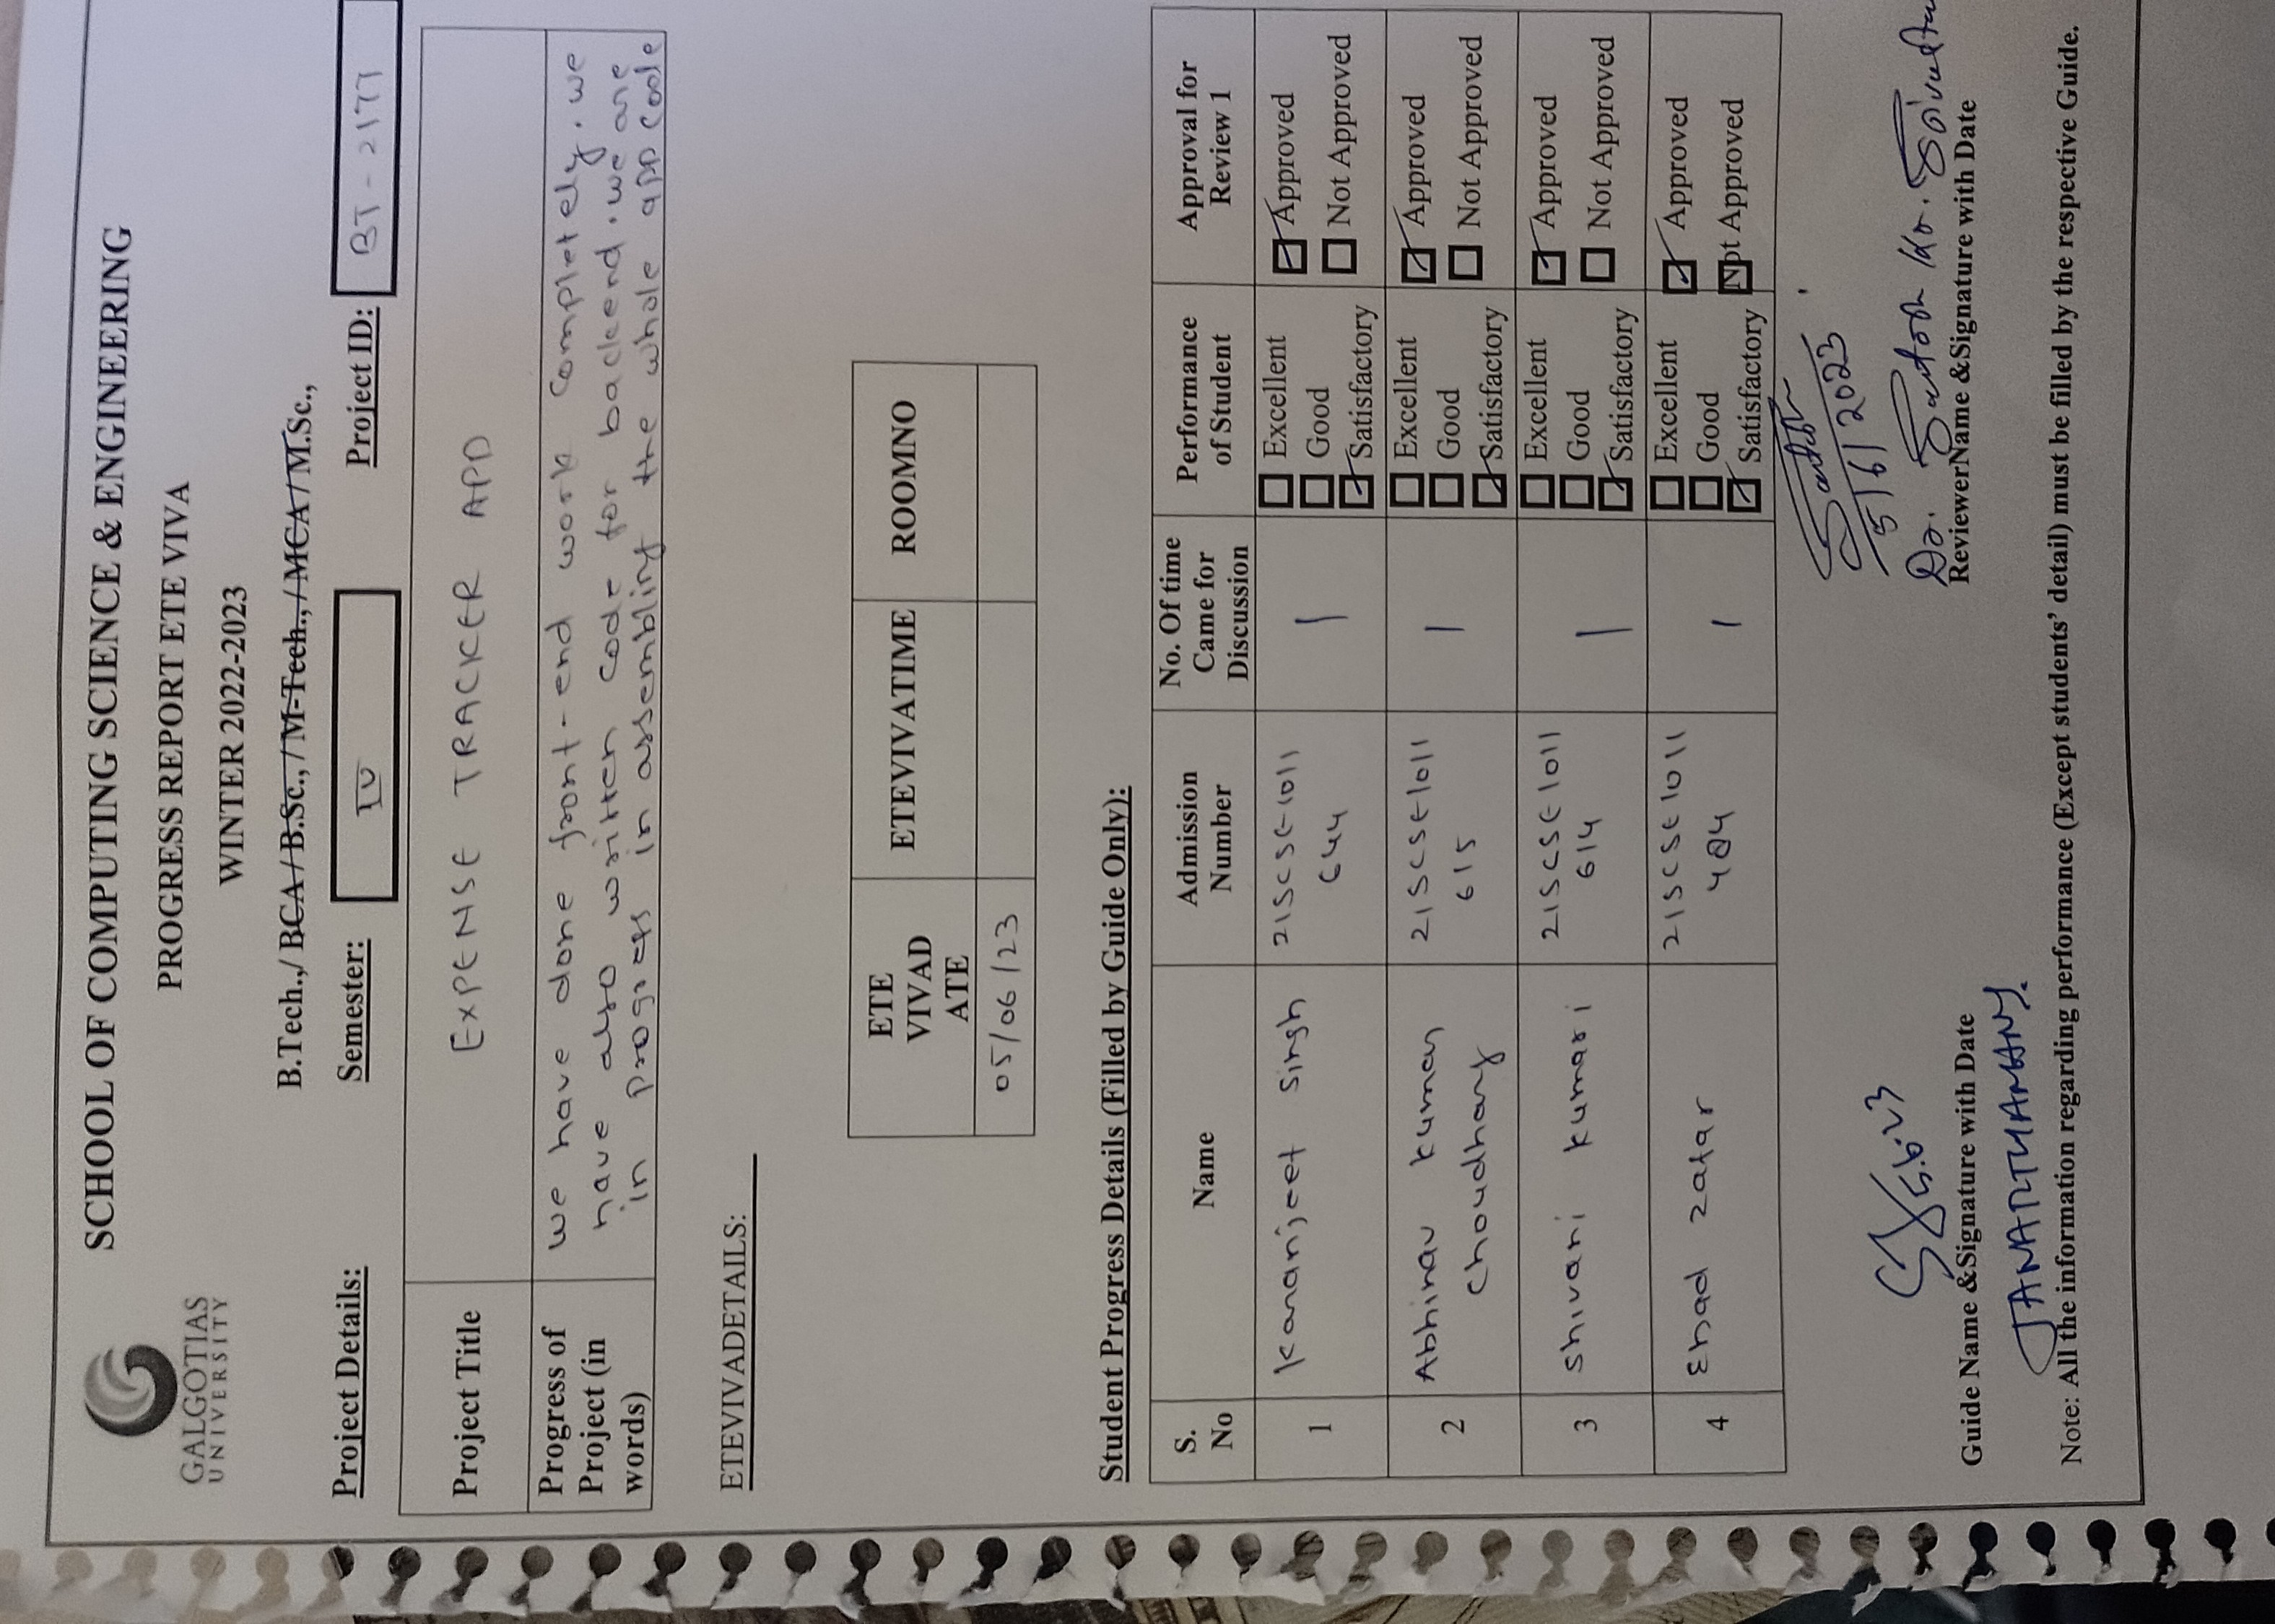 GALGOTIAS
UNIVERSITY
SCHOOL OF COMPUTING SCIENCE & ENGINEERING
PROGRESS REPORT ETE VIVA
WINTER 2022-2023
B.Tech.,/BCA/B.Sc.,/M-Tech.,/MCA/M.Sc.,
Project Details: Semester: IV Project ID: BT-2177
Project Title EXPENSE TRACKER APP
Progress of Project (in words)
we have done front-end work completely. we
have also written code for backend. we are
in progress in assembling the whole app code
ETEVIVADETAILS:
ETE VIVAD ATE ETEVIVATIME ROOMNO
05/06/23
Student Progress Details (Filled by Guide Only):
S. No Name Admission Number No. Of time Came for Discussion Performance of Student Approval for Review 1
1 Karanjeet Singh 21SCSE1011 644 1 Excellent Good Satisfactory Approved Not Approved
2 Abhinav Kumar Choudhary 21SCSE1011 615 1 Excellent Good Satisfactory Approved Not Approved
3 Shivani Kumari 21SCSE1011 614 1 Excellent Good Satisfactory Approved Not Approved
4 Ehad Zafar 21SCSE1011 1 Excellent Good Satisfactory Approved Not Approved
5/6/2023
5.6.23
Dr. Santosh Kr.
Guide Name &Signature with Date ReviewerName &Signature with Date
Note: All the information regarding performance (Except students' detail) must be filled by the respective Guide.